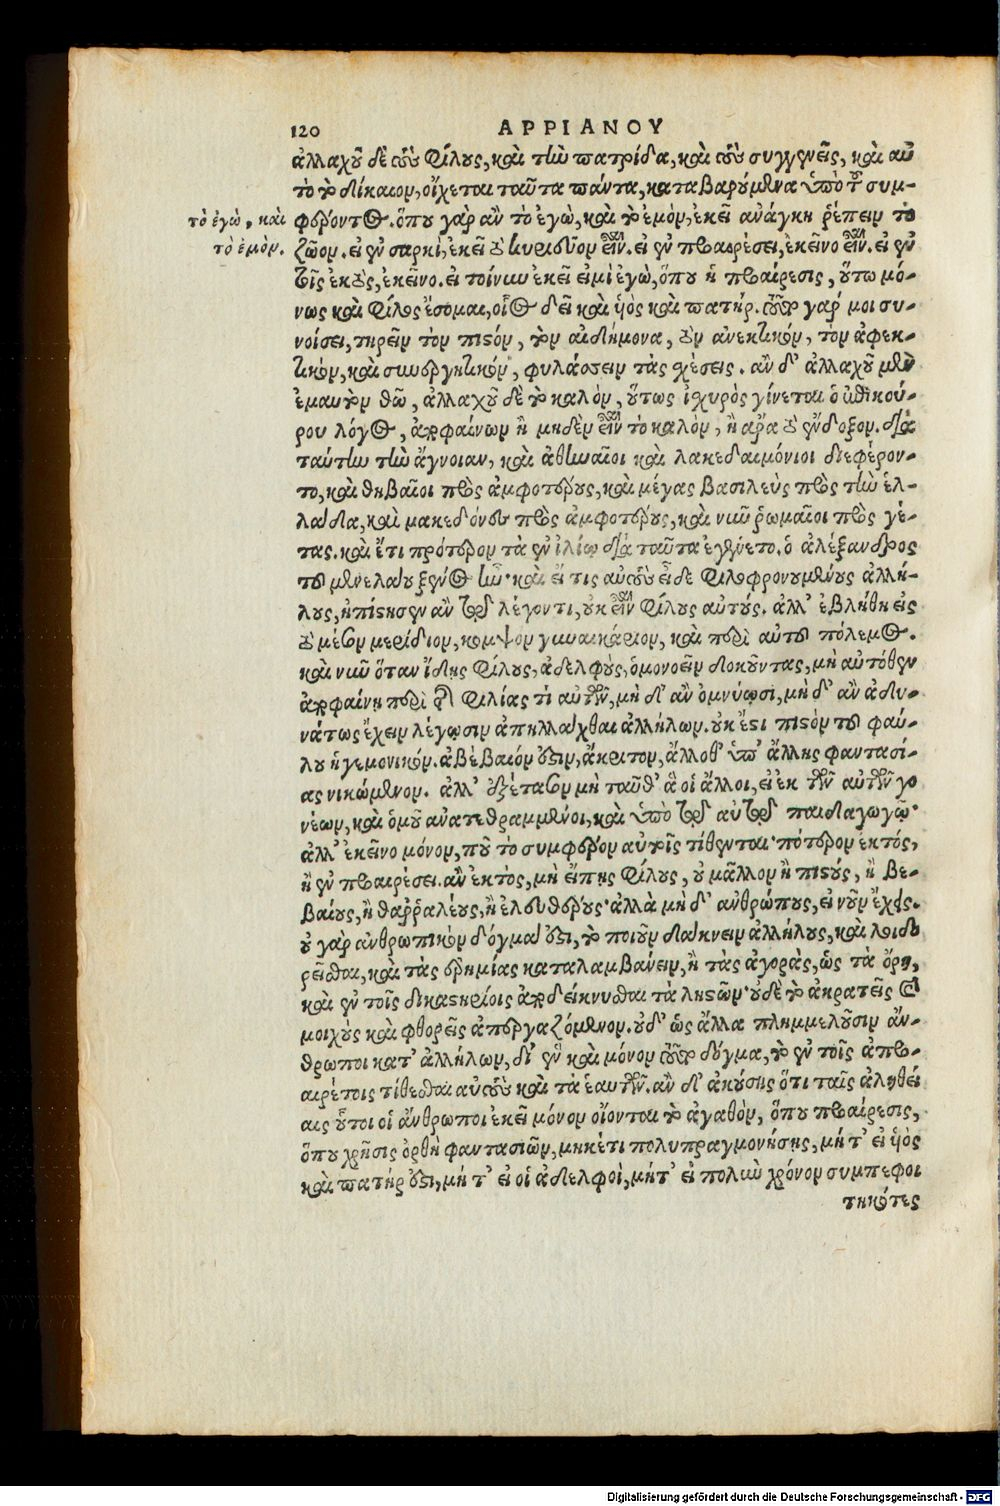 120
ΑΡΡΙΑΝΟΥ
ἀλλαχοῦ δὲ τοὺς φίλους, καὶ τὴν πατρίδα, καὶ τοὺς συγγενεῖς, καὶ αὐ
τὸ τὸ δίκαιον, οἴχεται ταῦτα πάντα, καταβαρούμενα ὑπὸ τοῦ συμ-
φέροντος. ὅπου γὰρ ἂν τὸ ἐγὼ, καὶ τὸ ἐμὸν, ἐκεῖ ἀνάγκη ῥέπειν τὸ
τὸ ἐγὼ, καὶ
τὸ ἐμὸν.
ζῶον. εἰ ἐν σαρκὶ, ἐκεῖ τὸ κυριεῦον εἶναι. εἰ ἐν προαιρέσει, ἐκεῖνο εἶναι. εἰ ἐν
τοῖς ἐκτὸς, ἐκεῖνο. εἰ τοίνυν ἐκεῖ εἰμὶ ἐγὼ, ὅπου ἡ προαίρεσις, οὕτω μό-
νως καὶ φίλος ἔσομαι, οἷος δεῖ καὶ ὑὸς καὶ πατήρ. τοῦτο γάρ μοι συ-
νοίσει, τηρεῖν τὸν πιστόν, τὸν αἰδήμονα, τὸν ἀνεκτικόν, τὸν ἀφεκ-
τικόν, καὶ συνεργητικόν, φυλάσσειν τὰς σχέσεις. ἂν δ' ἀλλαχοῦ μὲν
ἐμαυτὸν θῶ, ἀλλαχοῦ δὲ τὸ καλὸν, οὕτως ἰσχυρὸς γίνεται ὁ ἐπικού-
ρου λόγος, ἀποφαίνων ἢ μηδὲν εἶναι τὸ καλὸν, ἢ ἄρα τὸ ἔνδοξον. διὰ
ταύτην τὴν ἄγνοιαν, καὶ ἀθηναῖοι καὶ λακεδαιμόνιοι διεφέρον-
το, καὶ θηβαῖοι πρὸς ἀμφοτέρους, καὶ μέγας βασιλεὺς πρὸς τὴν ἑλ-
λάδα, καὶ μακεδόνες πρὸς ἀμφοτέρους, καὶ νῦν ῥωμαῖοι πρὸς γέ-
τας. καὶ ἔτι πρότερον τὰ ἐν ἰλίῳ διὰ ταῦτα ἐγένετο. ὁ ἀλέξανδρος
τοῦ μενελάου ξένος ἦν· καὶ εἴ τις αὐτοὺς εἶδε φιλοφρονουμένους ἀλλή-
λους, ἠπίστησεν ἂν τῷ λέγοντι, οὐκ εἶναι φίλους αὐτούς. ἀλλ' ἐβλήθη εἰς
τὸ μέσον μερίδιον, κομψὸν γυναικάριον, καὶ περὶ αὐτοῦ πόλεμος.
καὶ νῦν ὅταν ἴδῃς φίλους, ἀδελφοὺς, ὁμονοεῖν δοκοῦντας, μὴ αὐτόθεν
ἀποφαίνῃ περὶ τῆς φιλίας τὶ αὐτῶν, μὴ δ' ἂν ὀμνύωσι, μὴ δ' ἂν ἀδυ-
νάτως ἔχειν λέγωσιν ἀπηλλάχθαι ἀλλήλων. οὐκ ἔστι πιστὸν τὸ τοῦ φαύ-
λου ἡγεμονικόν. ἀβέβαιόν ἐστιν, ἄκριτον, ἄλλοθ' ὑπ' ἄλλης φαντασί-
ας νικώμενον. ἀλλ' ἐξέτασον μὴ ταῦθ' ἃ οἱ ἄλλοι, εἰ ἐκ τῶν αὐτῶν γο
νέων, καὶ ὁμοῦ ἀνατεθραμμένοι, καὶ ὑπὸ τῷ αὐτῷ παιδαγωγῷ·
ἀλλ' ἐκεῖνο μόνον, ποῦ τὸ συμφέρον αὑτοῖς τίθενται· πότερον ἐκτός,
ἢ ἐν προαιρέσει. ἂν ἐκτὸς, μὴ εἴπῃς φίλους, οὐ μᾶλλον ἢ πιστούς, ἢ βε-
βαίους, ἢ θαῤῥαλέους, ἢ ἐλευθέρους· ἀλλὰ μὴ δ' ἀνθρώπους, εἰ νοῦν ἔχεις.
οὐ γὰρ ἀνθρωπικὸν δόγμα ἐστι, τὸ ποιοῦν δάκνειν ἀλλήλους, καὶ λοιδο
ρεῖσθαι, καὶ τὰς ἐρημίας καταλαμβάνειν, ἢ τὰς ἀγορὰς, ὡς τὰ ὄρη,
καὶ ἐν τοῖς δικαστηρίοις ἀποδείκνυσθαι τὰ λῃστῶν· οὐδὲ τὸ ἀκρατεῖς καὶ
μοιχοὺς καὶ φθορεῖς ἀπεργαζόμενον. οὐδ' ὡς ἄλλα πλημμελοῦσιν ἄν-
θρωποι κατ' ἀλλήλων, δι' ἓν καὶ μόνον τοῦτο δόγμα, τὸ ἐν τοῖς ἀπρο-
αιρέτοις τίθεσθαι αὑτοὺς καὶ τὰ ἑαυτῶν. ἂν δ' ἀκούσῃς ὅτι ταῖς ἀληθεί
αις οὗτοι οἱ ἄνθρωποι ἐκεῖ μόνον οἴονται τὸ ἀγαθὸν, ὅπου προαίρεσις,
ὅπου χρῆσις ὀρθὴ φαντασιῶν, μηκέτι πολυπραγμονήσῃς, μήτ' εἰ ὑὸς
καὶ πατήρ ἐστι, μήτ' εἰ οἱ ἀδελφοὶ, μήτ' εἰ πολὺν χρόνον συμπεφοι
τηκότες
Digitalisierung gefördert durch die Deutsche Forschungsgemeinschaft - DFG